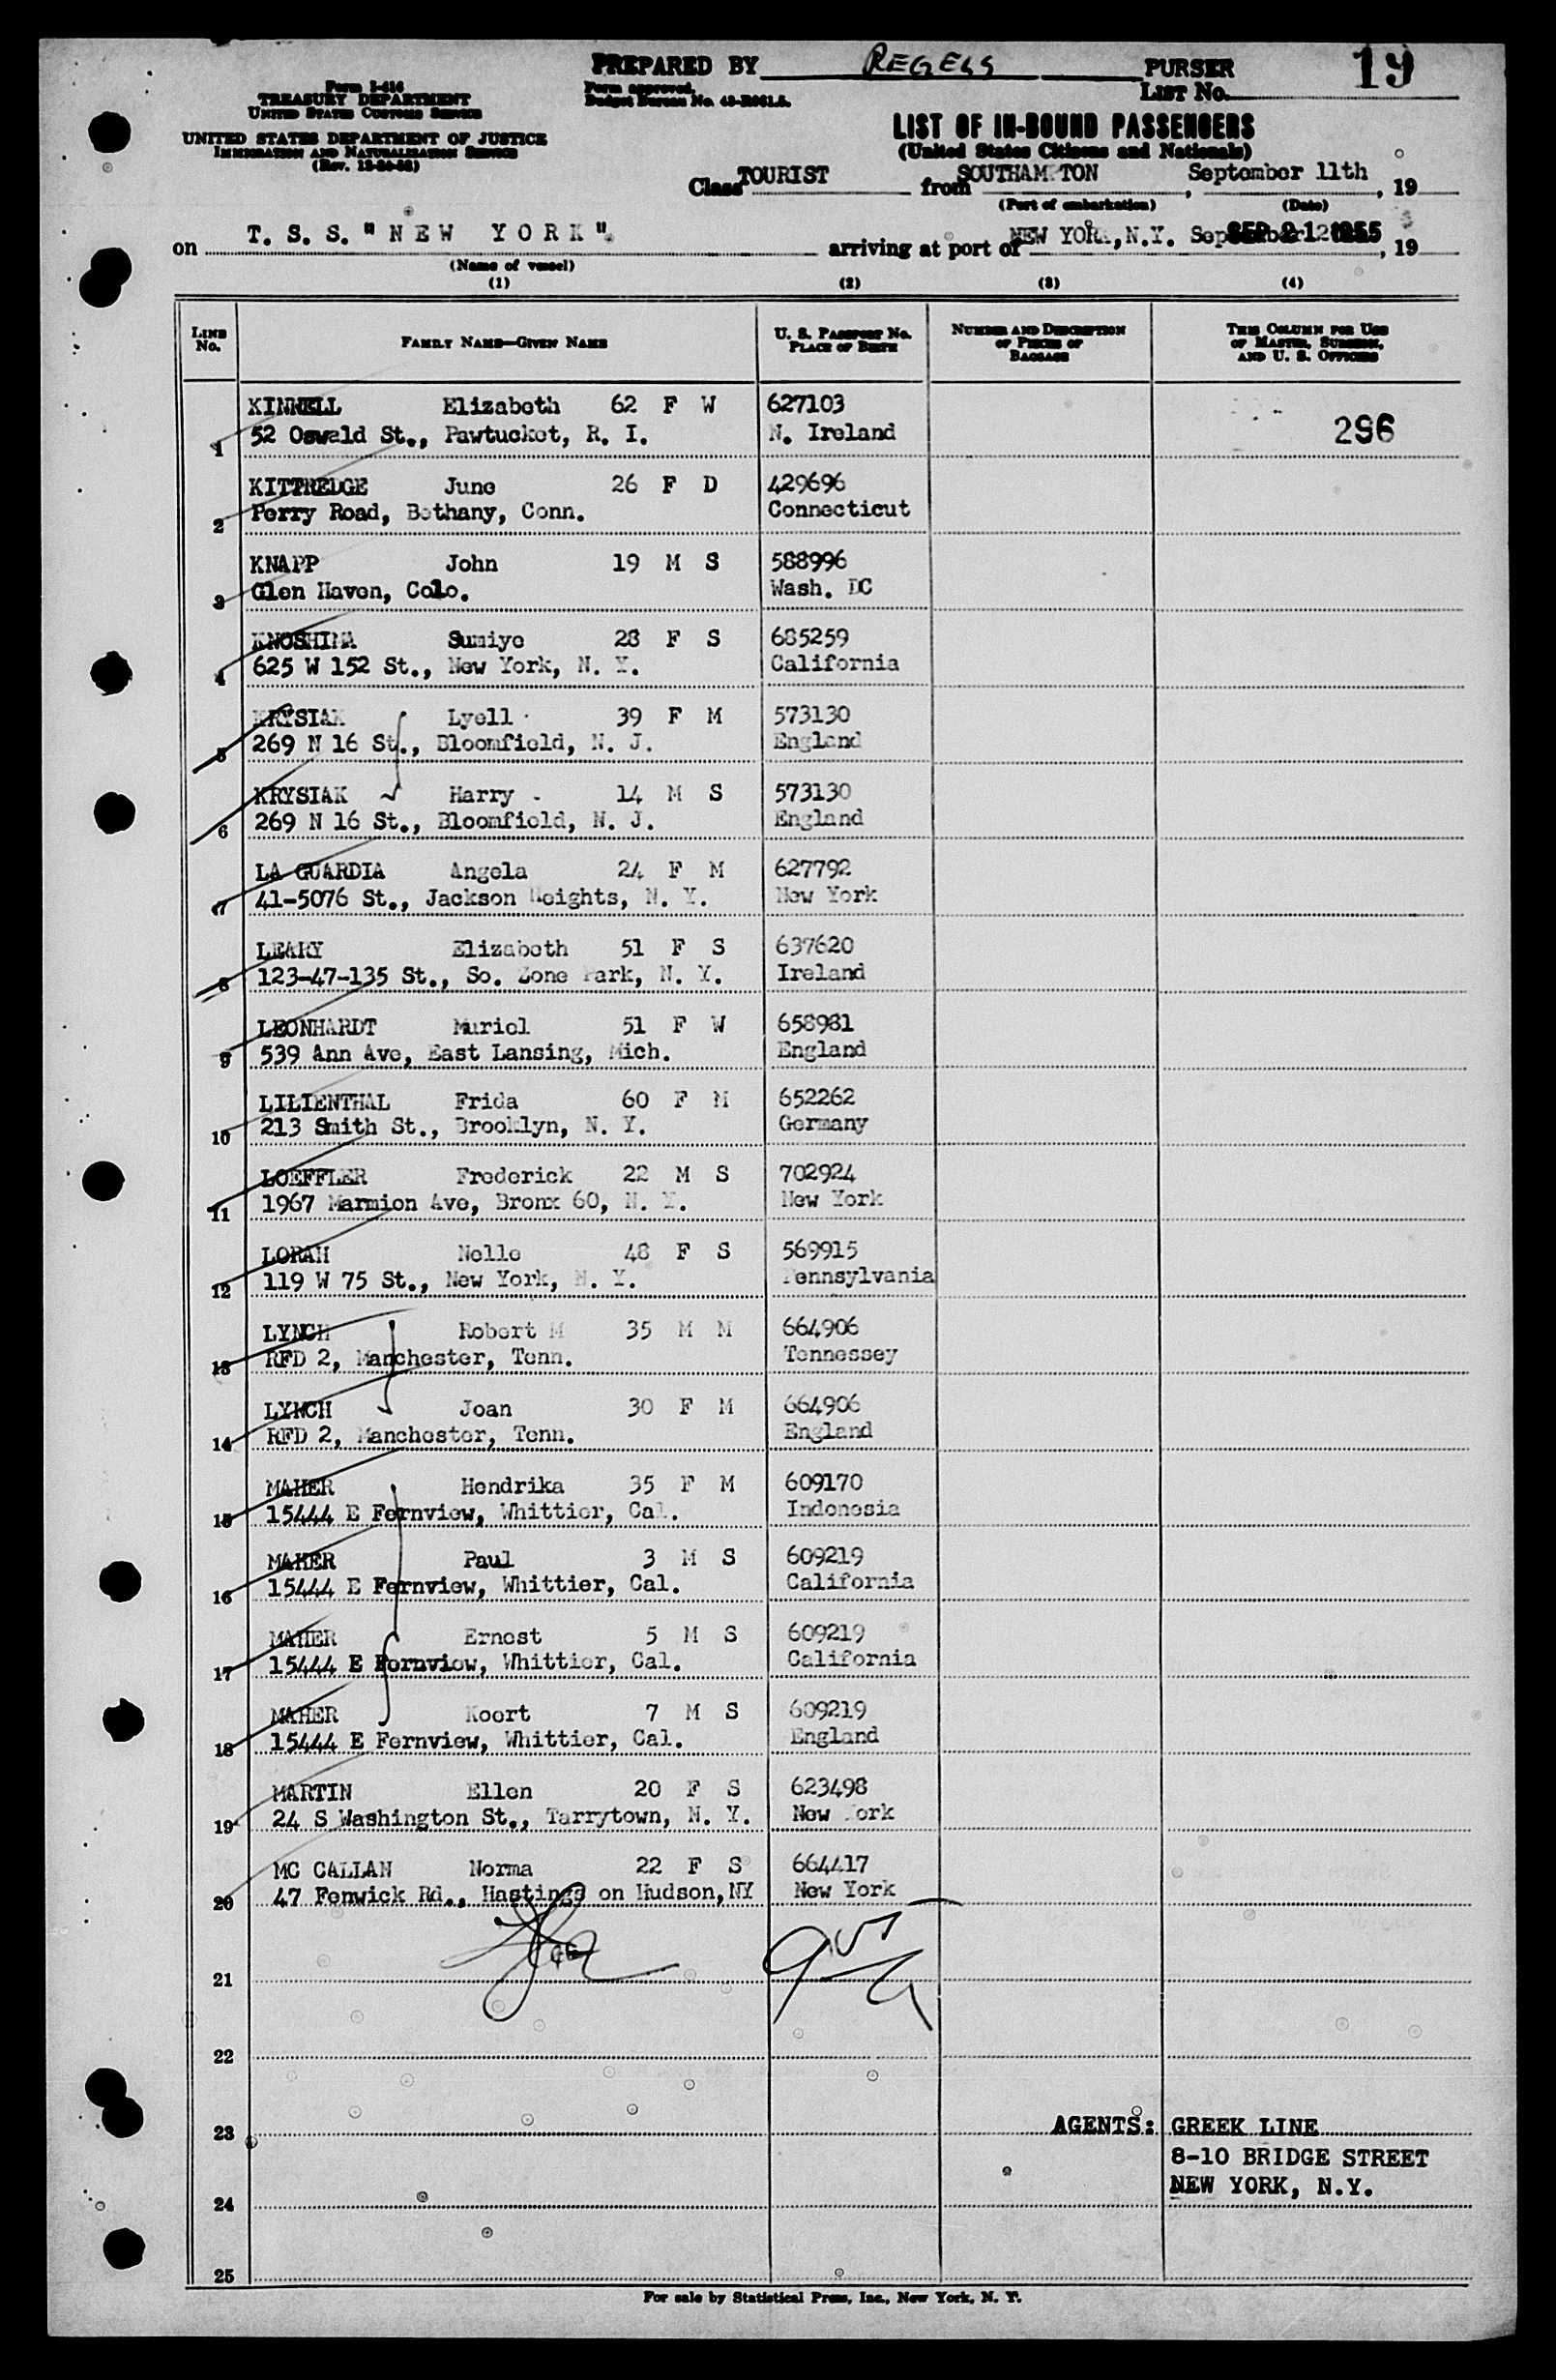 PREPARED BY REGELS PURSER
19
Form I-416
TREASURY DEPARTMENT
UNITED STATES CUSTOMS SERVICE
Form approved.
Budget Bureau No. 43-R061.5.
LIST No.
UNITED STATES DEPARTMENT OF JUSTICE
IMMIGRATION AND NATURALIZATION SERVICE
LIST OF IN-BOUND PASSENGERS
(United States Citizens and Nationals)
Class TOURIST from SOUTHAM TON, September 11th, 19
(Port of embarkation) (Date)
on T. S. S. "NEW YORK". arriving at port of NEW YORK, N.Y. SEP 21 1955, 19
(Name of vessel)
(1) (2) (3) (4)
LINE No.
FAMILY NAME—GIVEN NAME
U. S. PASSPORT No.
PLACE OF BIRTH
NUMBER AND DESCRIPTION
OF PIECES OF
BAGGAGE
THIS COLUMN FOR USE
OF MASTER, SURGEON,
AND U. S. OFFICERS
KINNELL Elizabeth 62 F W 627103
1 52 Oswald St., Pawtucket, R. I. N. Ireland 296
KITTREDGE June 26 F D 429696
2 Perry Road, Bethany, Conn. Connecticut
KNAPP John 19 M S 588996
3 Glen Haven, Colo. Wash. DC
KNOSHIMA Sumiye 28 F S 685259
4 625 W 152 St., New York, N. Y. California
KRYSIAK Lyell 39 F M 573130
5 269 N 16 St., Bloomfield, N. J. England
KRYSIAK Harry 14 M S 573130
6 269 N 16 St., Bloomfield, N. J. England
LA GUARDIA Angela 24 F M 627792
7 41-5076 St., Jackson Heights, N. Y. New York
LEARY Elizabeth 51 F S 637620
8 123-47-135 St., So. Zone Park, N. Y. Ireland
LEONHARDT Muriel 51 F W 658981
9 539 Ann Ave, East Lansing, Mich. England
LILIENTHAL Frida 60 F M 652262
10 213 Smith St., Brooklyn, N. Y. Germany
LOEFFLER Frederick 22 M S 702924
11 1967 Marmion Ave, Bronx 60, N. Y. New York
LORAH Nelle 48 F S 569915
12 119 W 75 St., New York, N. Y. Pennsylvania
LYNCH Robert M 35 M M 664906
13 RFD 2, Manchester, Tenn. Tennessey
LYNCH Joan 30 F M 664906
14 RFD 2, Manchester, Tenn. England
MAHER Hendrika 35 F M 609170
15 15444 E Fernview, Whittier, Cal. Indonesia
MAHER Paul 3 M S 609219
16 15444 E Fernview, Whittier, Cal. California
MAHER Ernest 5 M S 609219
17 15444 E Fernview, Whittier, Cal. California
MAHER Koert 7 M S 609219
18 15444 E Fernview, Whittier, Cal. England
MARTIN Ellen 20 F S 623498
19 24 S Washington St., Tarrytown, N. Y. New York
MC CALLAN Norma 22 F S 664417
20 47 Fenwick Rd., Hastings on Hudson, NY New York
21
22
23 AGENTS: GREEK LINE
8-10 BRIDGE STREET
24 NEW YORK, N.Y.
25
For sale by Statistical Press, Inc., New York, N. Y.